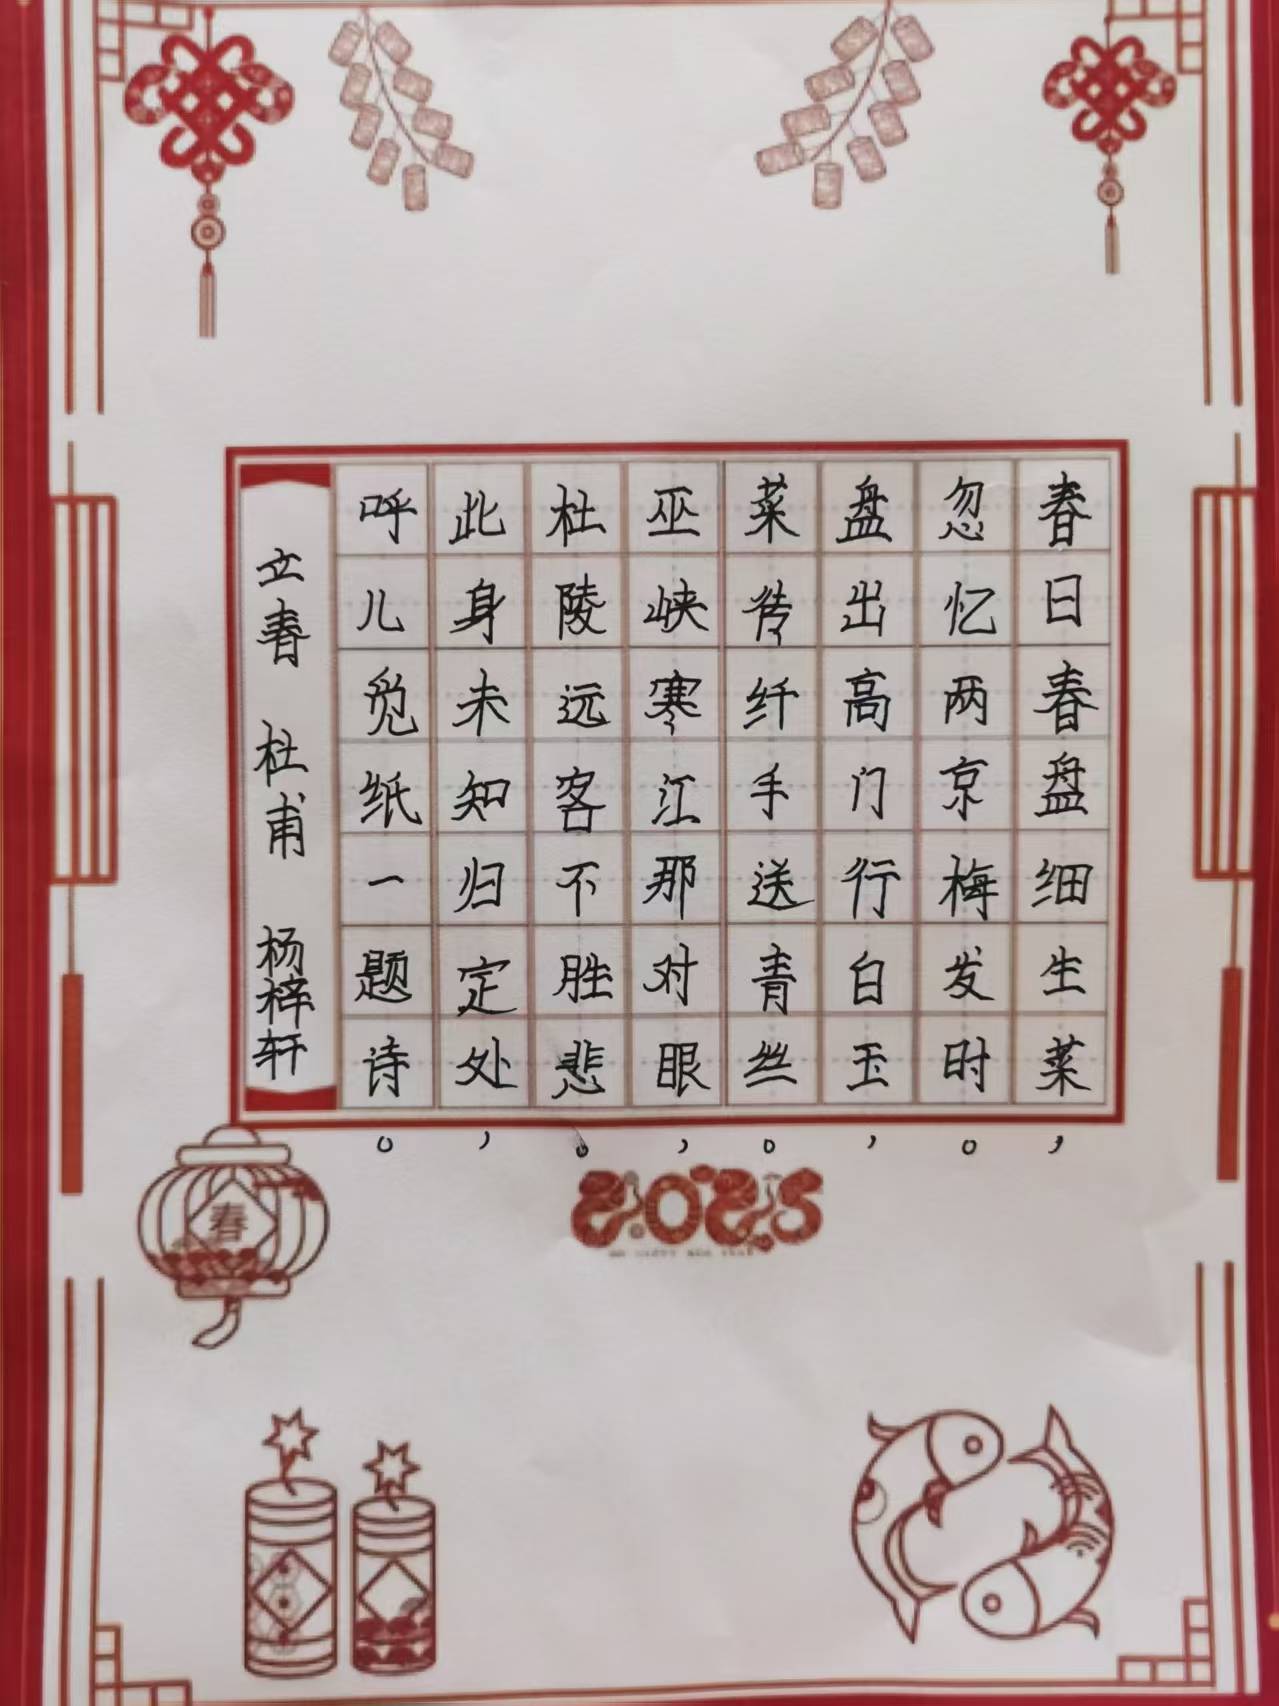 春日春盘细生菜，
忽忆两京梅发时。
盘出高门行白玉，
菜传纤手送青丝。
巫峡寒江那对眼，
杜陵远客不胜悲。
此身未知归定处，
呼儿觅纸一题诗。
立春 杜甫 杨梓轩
春
2025